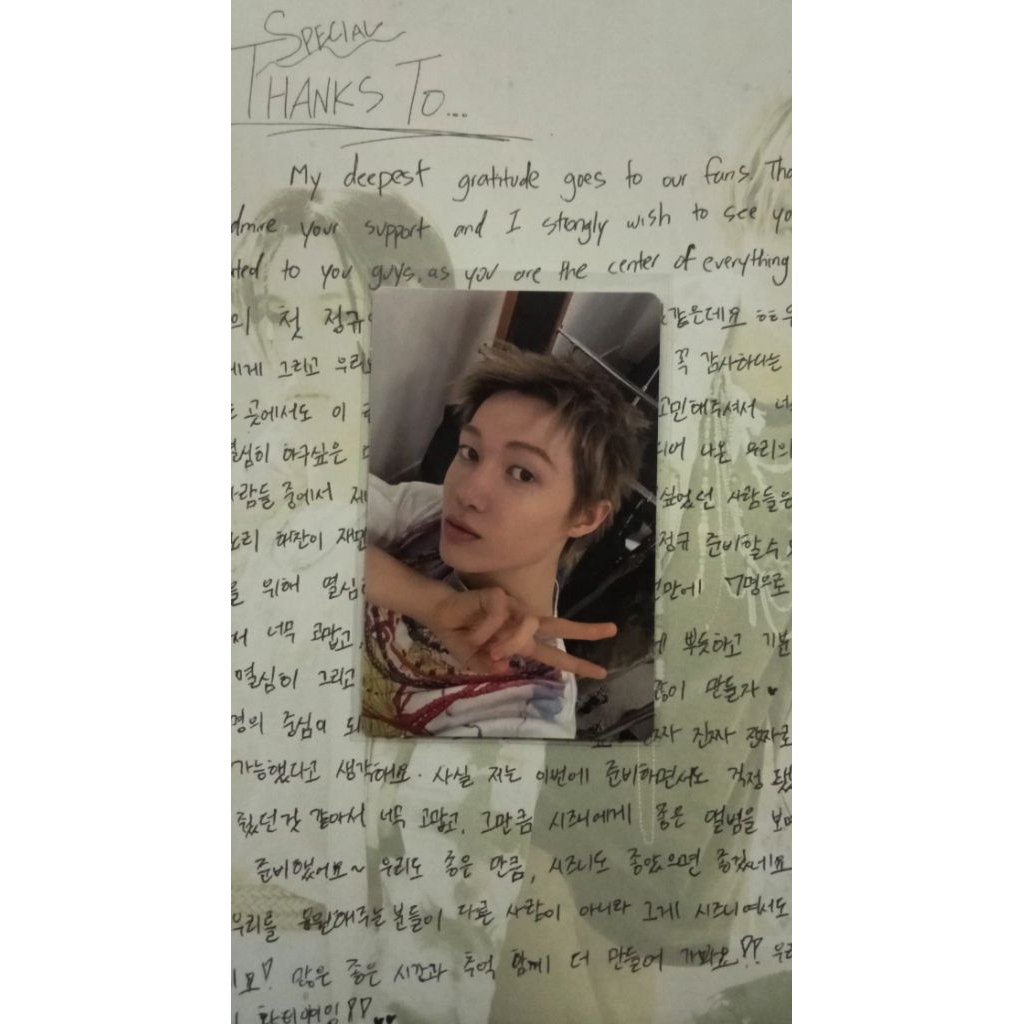 SPECIAL
THANKS TO...
My deepest gratitude goes to our fans. Tha
dmire your support and I strongly wish to see yo
ted to you guys, as you are the center of everything
의 첫 정규 같은데요 ㅎㅎ 우
에게 그리고 우리 꼭 감사하다는
곳에서도 이 고민해주셔서 너
열심히 하구싶은 되어 나온 우리의
사람들 중에서 제 싶었던 사람들은
우리 해찬이 재 정규 준비할 수
을 위해 열심 만에 7명으로
서 너무 고맙고, 뿌듯하고 기분
열심히 그리고 많이 만들자 ♥
경의 중심이 되 진짜 진짜로
가능했다고 생각해요. 사실 저는 이번에 준비하면서도 걱정 됐
줬던 것 같아서 너무 고맙고, 그만큼 시즈니에게 좋은 앨범을 보
준비했어요~ 우리도 좋은 만큼, 시즈니도 좋았으면 좋겠네요
우리를 응원해주는 분들이 다른 사람이 아니라 그게 시즈니여서도
요! 많은 좋은 시간과 추억 함께 더 만들어 가봐요!! 우리
화이팅!! ♥♥